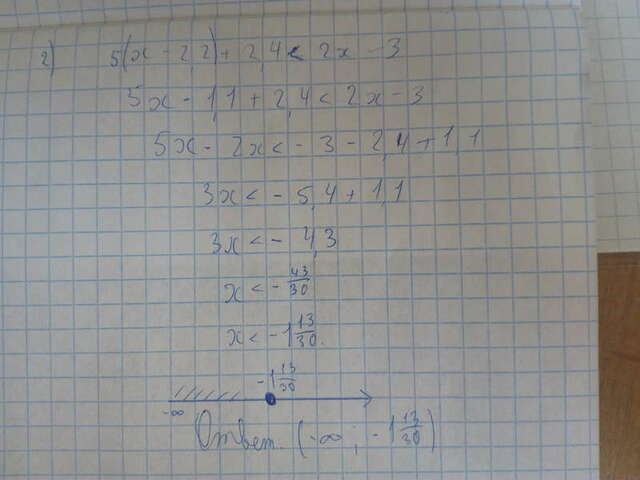 2) 5(x - 2,2) + 2,4 < 2x - 3
5x - 1,1 + 2,4 < 2x - 3
5x - 2x < - 3 - 2,4 + 1,1
3x < - 5,4 + 1,1
3x < - 4,3
x < - 43/30
x < - 1 13/30.
-1 13/30
-∞
Ответ. (-∞; -1 13/30)